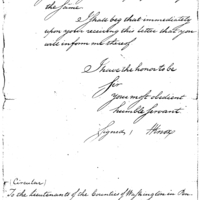 the same.
I shall beg that immediately
upon your receiving this letter that you
will inform me thereof
I have the honor to be
Sir
your most obedient
humble Servant
Signed HKnox
(Circular)
To the Lieutenants of the Counties of Washington in Pen